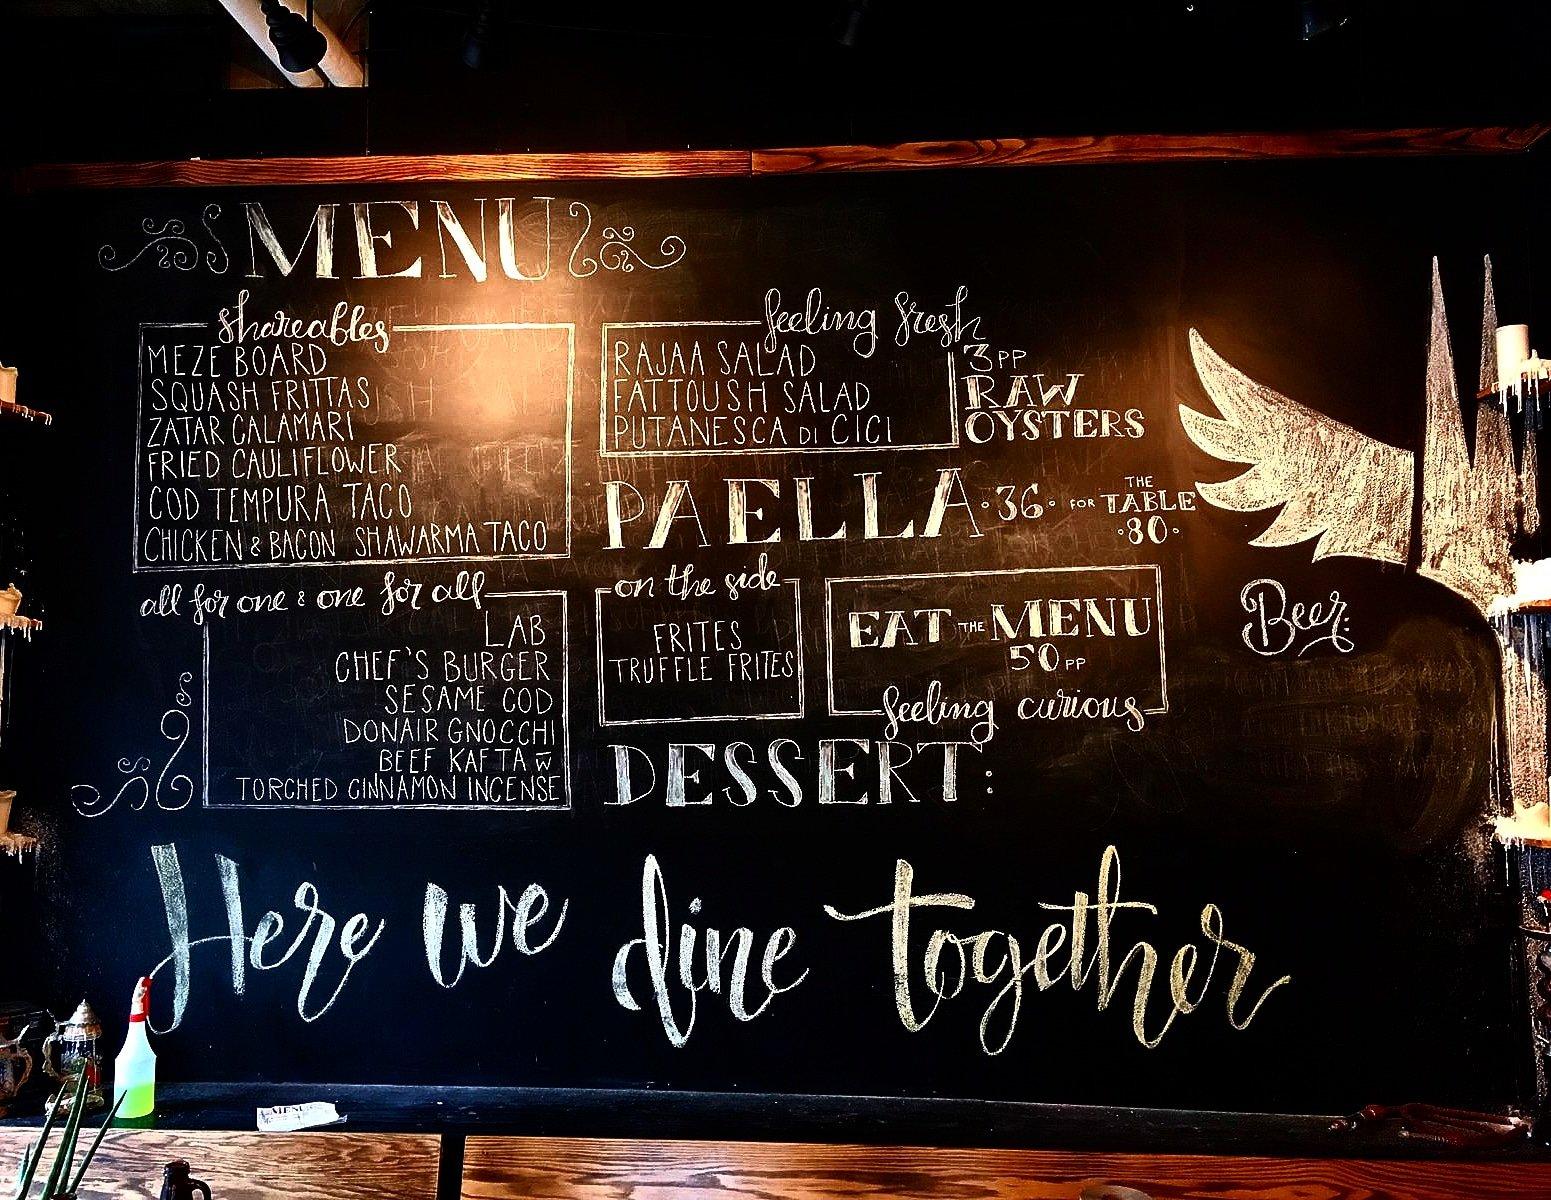 MENU
shareables
MEZE BOARD
SQUASH FRITTAS
ZATAR CALAMARI
FRIED CAULIFLOWER
COD TEMPURA TACO
CHICKEN & BACON SHAWARMA TACO
feeling fresh
RAJAA SALAD
FATTOUSH SALAD
PUTANESCA DI CICI
3PP
RAW
OYSTERS
PAELLA •36• FOR THE TABLE •80•
all for one & one for all
LAB
CHEF'S BURGER
SESAME COD
DONAIR GNOCCHI
BEEF KAFTA w̄
TORCHED CINNAMON INCENSE
on the side
FRITES
TRUFFLE FRITES
EAT THE MENU
50PP
feeling curious
Beer:
DESSERT:
Here we dine together
MENU